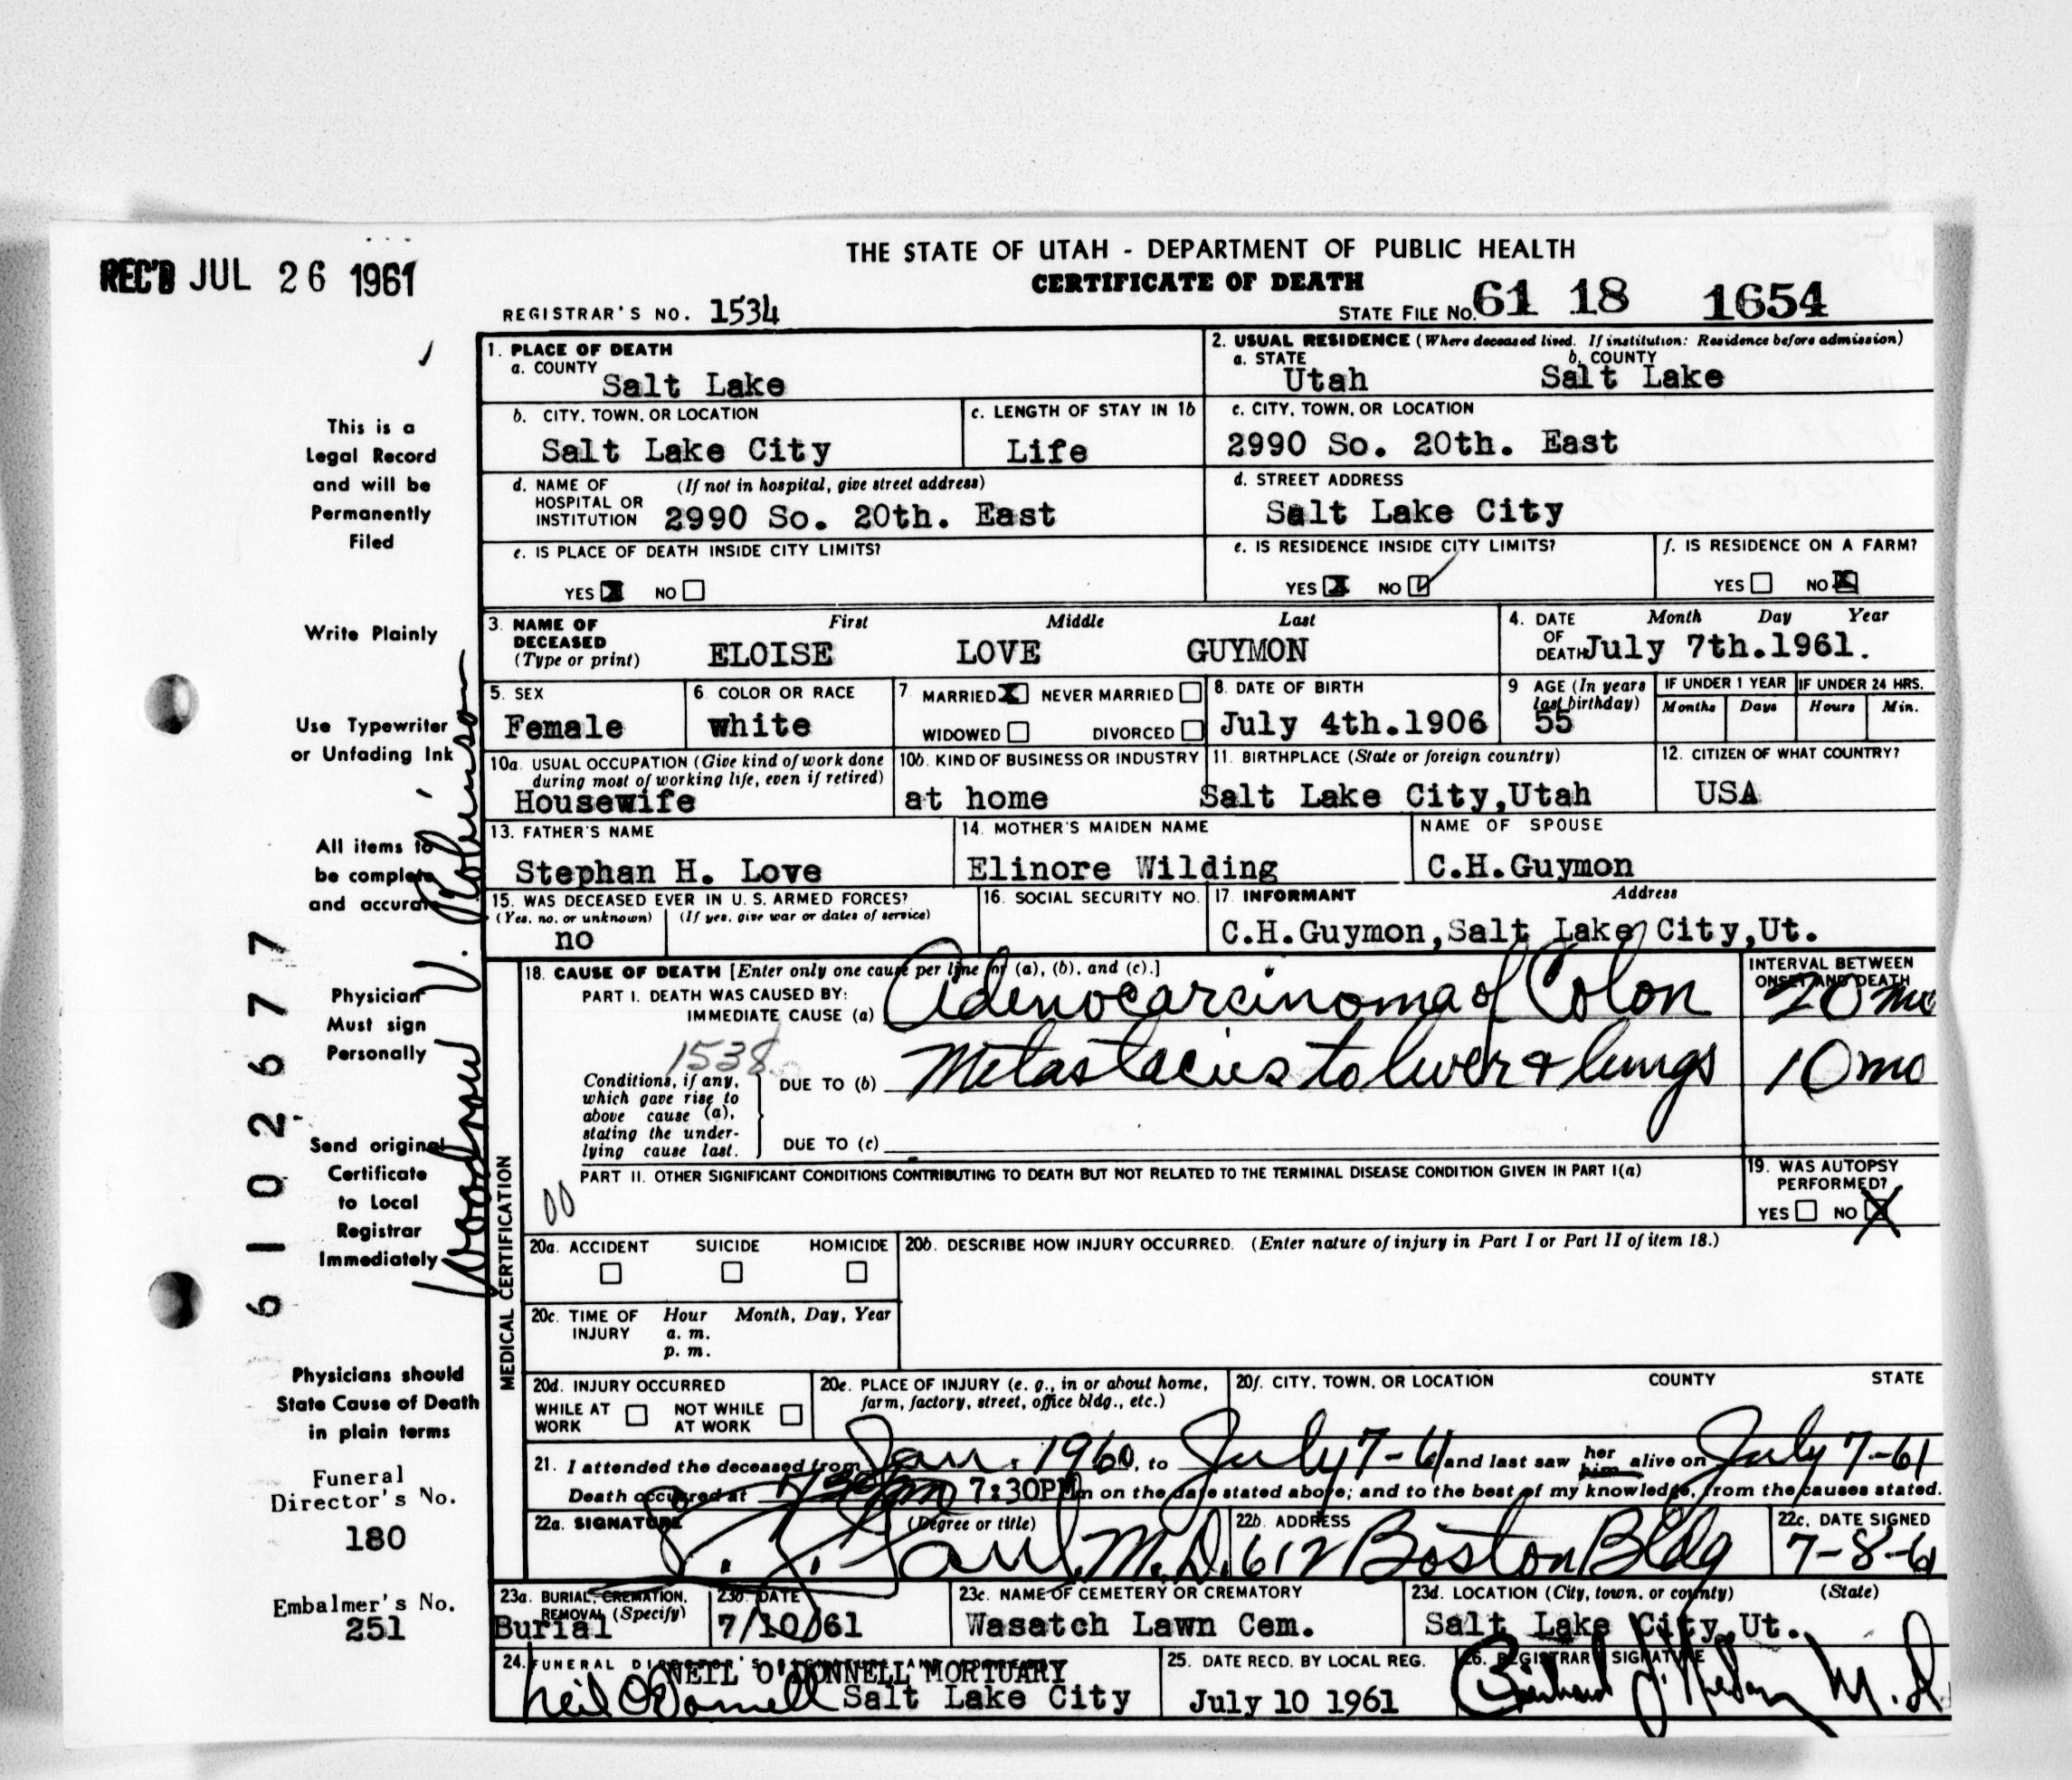 THE STATE OF UTAH - DEPARTMENT OF PUBLIC HEALTH
REC'D JUL 26 1961
CERTIFICATE OF DEATH
REGISTRAR'S NO. 1534
STATE FILE NO. 61 18 1654
1. PLACE OF DEATH
a. COUNTY
Salt Lake
2. USUAL RESIDENCE (Where deceased lived. If institution: Residence before admission)
a. STATE b. COUNTY
Utah Salt Lake
b. CITY, TOWN, OR LOCATION
Salt Lake City
c. LENGTH OF STAY IN 1b
Life
c. CITY, TOWN, OR LOCATION
2990 So. 20th. East
d. NAME OF (If not in hospital, give street address)
HOSPITAL OR
INSTITUTION 2990 So. 20th. East
d. STREET ADDRESS
Salt Lake City
e. IS PLACE OF DEATH INSIDE CITY LIMITS?
YES NO
e. IS RESIDENCE INSIDE CITY LIMITS?
YES NO
f. IS RESIDENCE ON A FARM?
YES NO
3. NAME OF First Middle Last
DECEASED
(Type or print) ELOISE LOVE GUYMON
4. DATE Month Day Year
OF
DEATH July 7th.1961.
5. SEX
Female
6. COLOR OR RACE
White
7. MARRIED NEVER MARRIED
WIDOWED DIVORCED
8. DATE OF BIRTH
July 4th.1906
9 AGE (In years
last birthday)
55
IF UNDER 1 YEAR IF UNDER 24 HRS.
Months Days Hours Min.
10a. USUAL OCCUPATION (Give kind of work done
during most of working life, even if retired)
Housewife
10b. KIND OF BUSINESS OR INDUSTRY
at home
11. BIRTHPLACE (State or foreign country)
Salt Lake City,Utah
12. CITIZEN OF WHAT COUNTRY?
USA
13. FATHER'S NAME
Stephan H. Love
14. MOTHER'S MAIDEN NAME
Elinore Wilding
NAME OF SPOUSE
C.H.Guymon
15. WAS DECEASED EVER IN U. S. ARMED FORCES?
(Yes, no, or unknown) (If yes, give war or dates of service)
no
16. SOCIAL SECURITY NO.
17. INFORMANT Address
C.H.Guymon,Salt Lake City,Ut.
MEDICAL CERTIFICATION
18. CAUSE OF DEATH [Enter only one cause per line for (a), (b), and (c).]
INTERVAL BETWEEN
ONSET AND DEATH
PART I. DEATH WAS CAUSED BY:
IMMEDIATE CAUSE (a) Adenocarcinoma of Colon 20 mo
1538
Conditions, if any,
which gave rise to
above cause (a),
stating the under-
lying cause last.
DUE TO (b) Metastacies to liver & lungs 10 mo
DUE TO (c)
PART II. OTHER SIGNIFICANT CONDITIONS CONTRIBUTING TO DEATH BUT NOT RELATED TO THE TERMINAL DISEASE CONDITION GIVEN IN PART I(a)
00
19. WAS AUTOPSY
PERFORMED?
YES NO
20a. ACCIDENT SUICIDE HOMICIDE
20b. DESCRIBE HOW INJURY OCCURRED. (Enter nature of injury in Part I or Part II of item 18.)
20c. TIME OF Hour Month, Day, Year
INJURY a. m.
p. m.
20d. INJURY OCCURRED
WHILE AT NOT WHILE
WORK AT WORK
20e. PLACE OF INJURY (e. g., in or about home,
farm, factory, street, office bldg., etc.)
20f. CITY, TOWN, OR LOCATION COUNTY STATE
21. I attended the deceased from Jan. 1960, to July 7-61 and last saw her him alive on July 7-61
Death occurred at 7:30PM m on the date stated above; and to the best of my knowledge, from the causes stated.
22a. SIGNATURE (Degree or title)
M.D.
22b. ADDRESS
612 Boston Bldg
22c. DATE SIGNED
7-8-61
23a. BURIAL, CREMATION,
REMOVAL (Specify)
Burial
23b. DATE
7/10/61
23c. NAME OF CEMETERY OR CREMATORY
Wasatch Lawn Cem.
23d. LOCATION (City, town, or county) (State)
Salt Lake City,Ut.
24. FUNERAL DIRECTOR'S
NEIL O'DONNELL MORTUARY
Neil O'Donnell Salt Lake City
25. DATE RECD. BY LOCAL REG.
July 10 1961
26. REGISTRAR'S SIGNATURE
M.D.
This is a
Legal Record
and will be
Permanently
Filed
Write Plainly
Use Typewriter
or Unfading Ink
All items to
be complete
and accurate
Physician
Must sign
Personally
Send original
Certificate
to Local
Registrar
Immediately
Physicians should
State Cause of Death
in plain terms
Funeral
Director's No.
180
Embalmer's No.
251
6102677
Woodrow V. Robinson